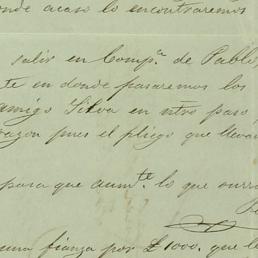 onde acaso lo encontraremos
salir en Comp.ª de Pablo,
te en donde pasaremos los
amigo Silva en ntro paso
razon pues el pliego que lleva
para que aum.te lo que ourra
una fianza por £1000. que le